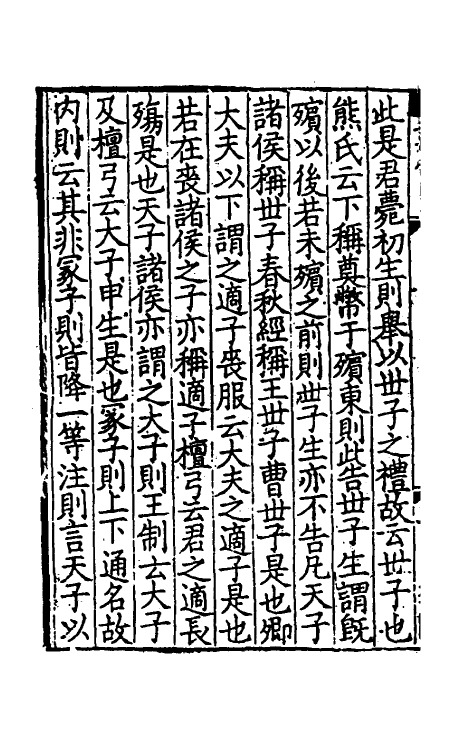 此是君薨初生則舉以世子之禮故云世子也
熊氏云下稱奠幣于殯東則此告世子生謂旣
殯以後若未殯之前則世子生亦不告凡天子
諸侯稱世子春秋經稱王世子曹世子是也卿
大夫以下謂之適子喪服云大夫之適子是也
若在喪諸侯之子亦稱適子檀弓云君之適長
殤是也天子諸侯亦謂之大子則王制云大子
及檀弓云大子申生是也冢子則上下通名故
内則云其非冢子則皆降一等注則言天子以